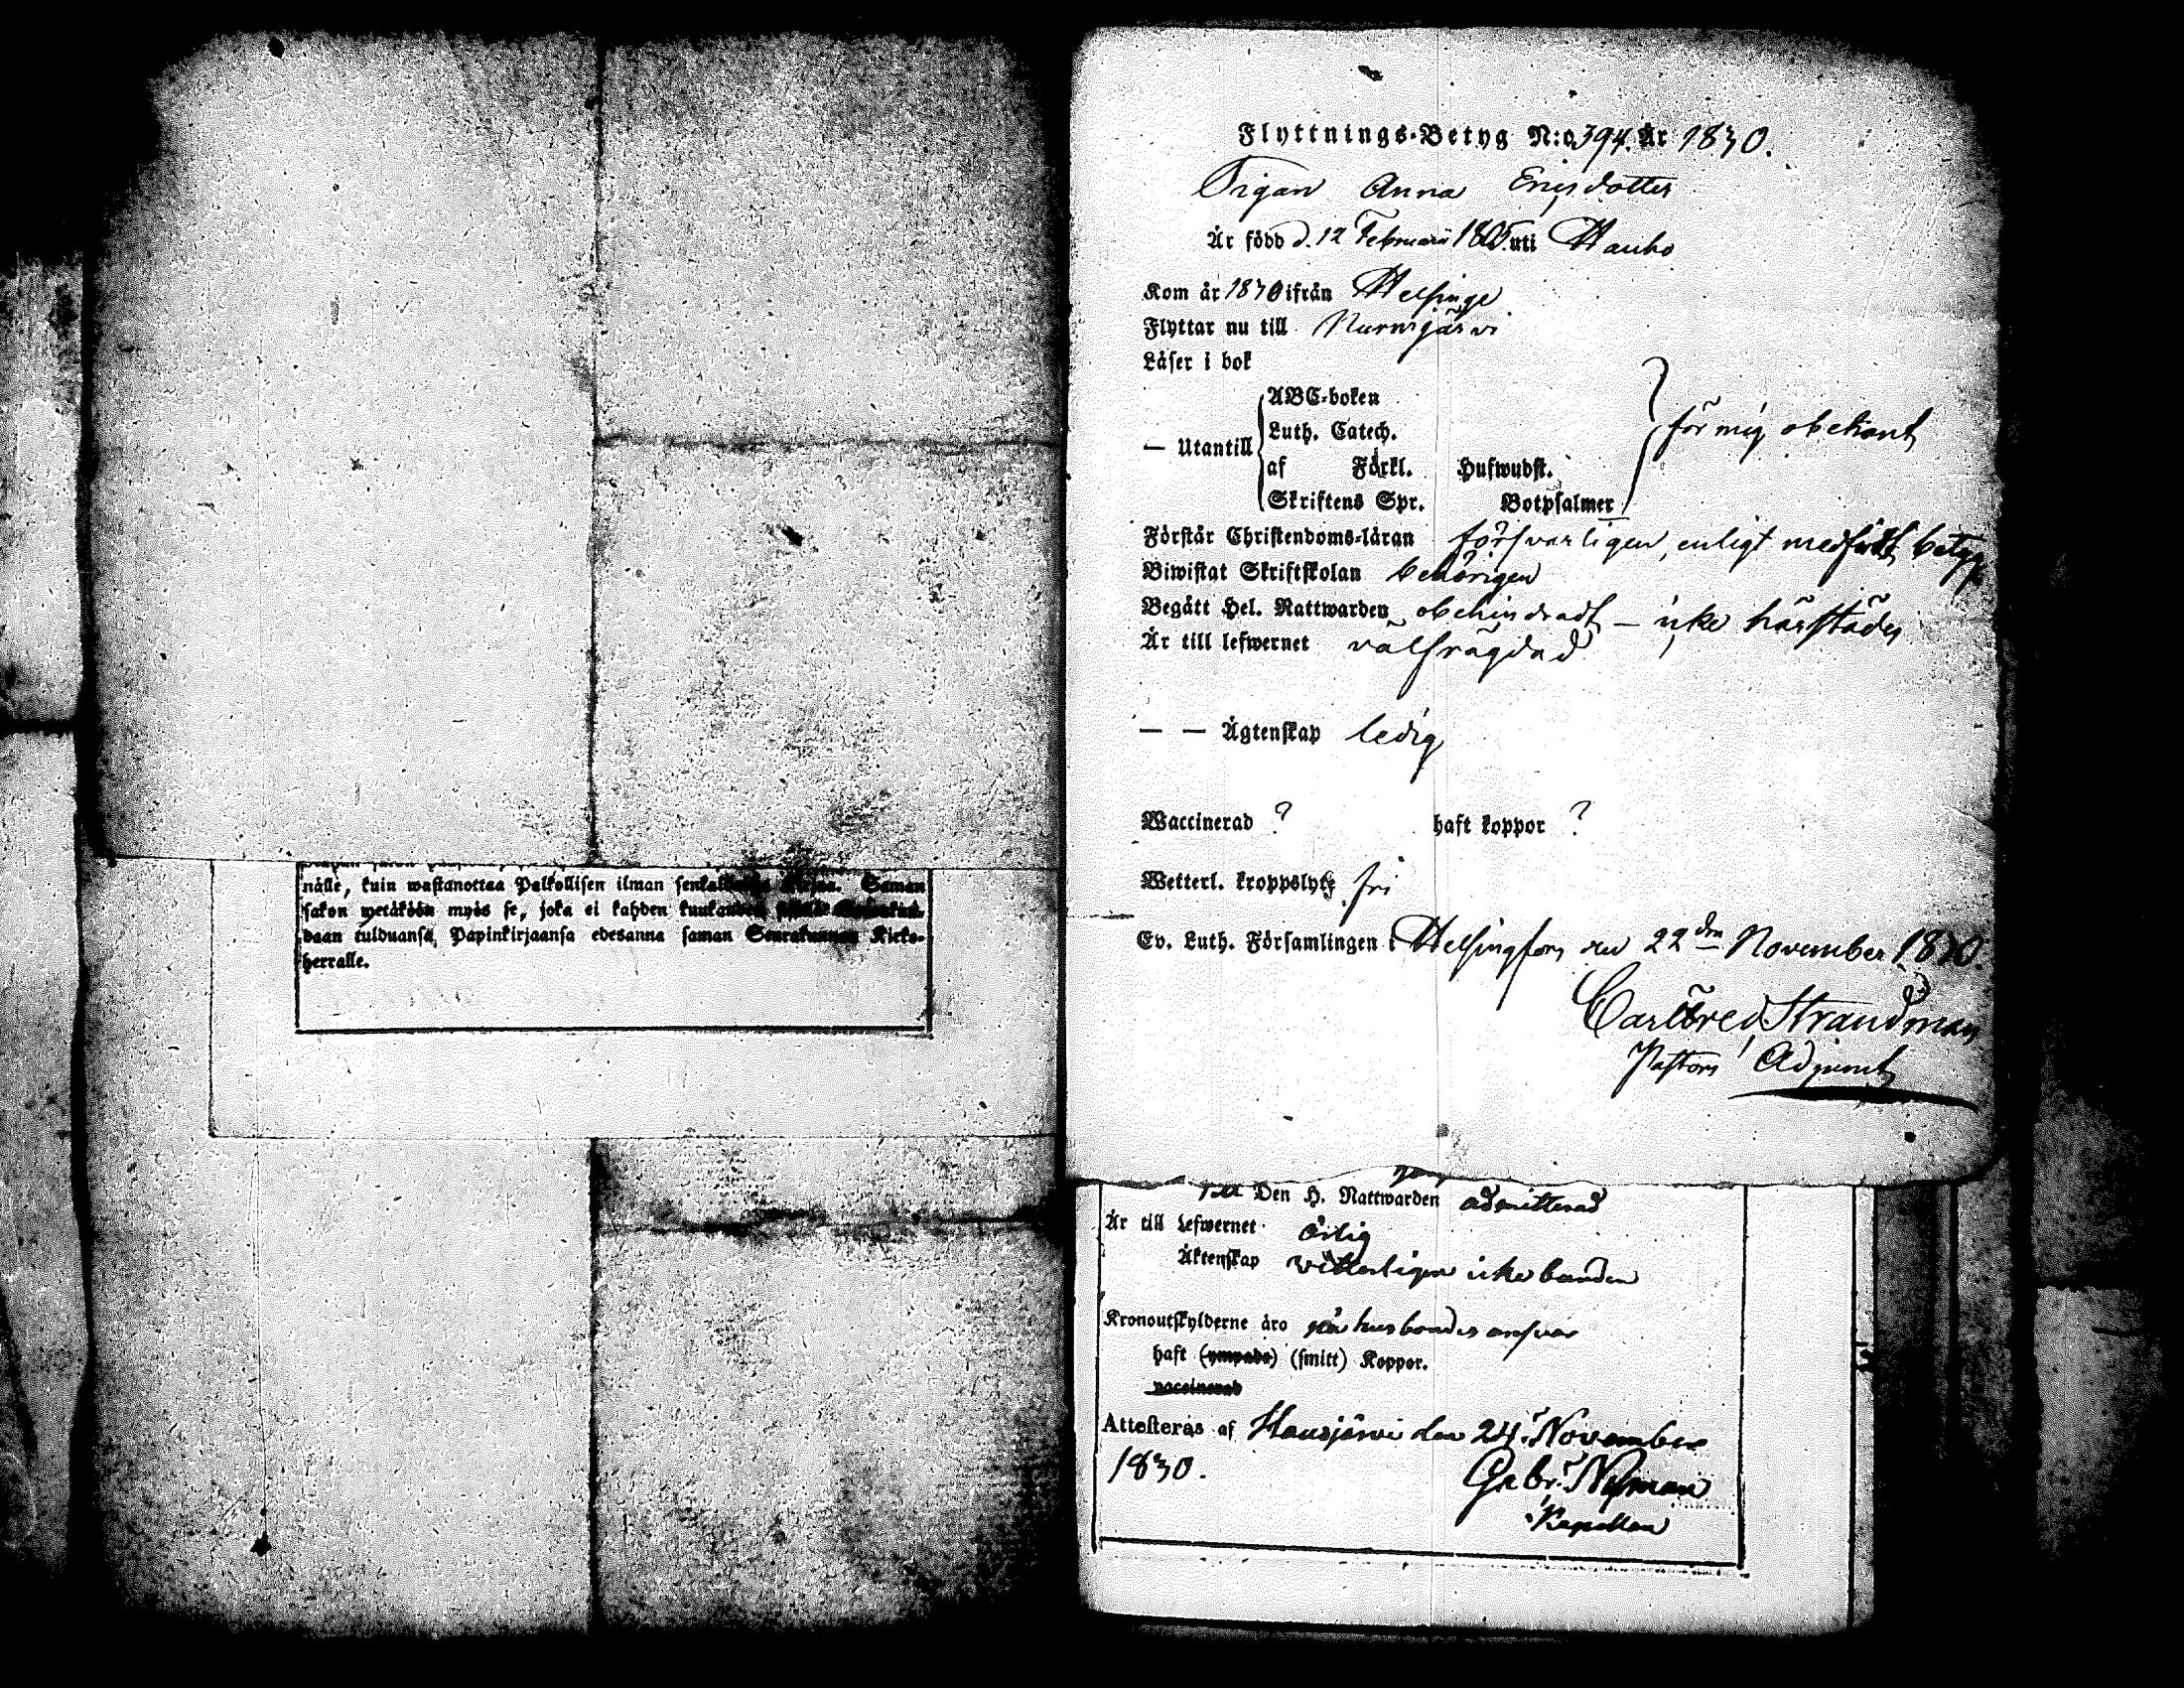 nälle, kuin wastanottaa Palkollisen ilman Saman
sakon wetäköön myös se, joka ei kahden
daan tulduansa, Papinkirjaansa edesanna saman Seurakunnan Kirko-
herralle.
Flyttnings-Betyg N:o 394. År 1830.
Pigan Anna Ericsdotter
Är född d. 12 Februarii 1805. uti Hauho
Kom år 1830 ifrån Helsinge
Flyttar nu till Nurmijärvi
Läser i bok
ABC-boken
— Utantill Luth. Catech. för mig obekant
af Förkl. Hufwudst.
Skriftens Spr. Botpsalmer
Förstår Christendoms-läran försvarligen, enligt medfördt betyg
Biwistat Skriftskolan behörigen
Begått Hel. Nattwarden obehindradt — icke härstädes
Är till lefwernet välfrägdad
— — Ägtenskap ledig
Waccinerad ? haft koppor ?
Wetterl. kroppslyte fri
Ev. Luth. Församlingen i Helsingfors den 22dra November 1830.
Carl Fred Strandman
Pastors Adjunct
Den H. Nattwarden admitterad
Är till lefwernet ärlig
Äktenskap vitterligen icke bunden
Kronoutskylderne äro på husbondes ansvar
haft (ympade) (smitt) Koppor.
vaccinerad
Attesteras af Hausjärvi den 24 November
1830. Gabr. Nyman
Kapellan